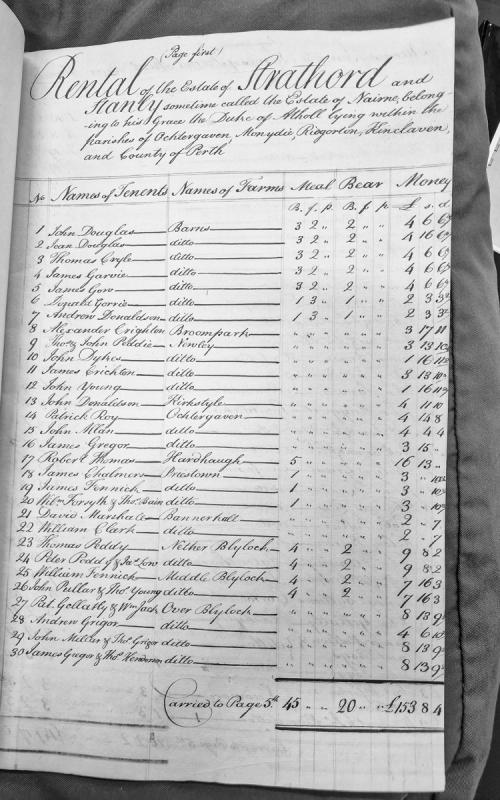 (Page first)
Rental of the Estate of Strathord and
Stanly sometime called the Estate of Nairne, belong-
ing to his Grace the Duke of Atholl lying within the
parishes of Ochtergaven, Monydie, Redgorton, Kinclaven,
and County of Perth
No Names of Tenents Names of Farms Meal Bear Money
B. f. p. B. f. p. £ s. d
1 John Douglas Barns 3 2 " 2 " " 4 6 6
2 Jean Douglas ditto 3 2 " 2 " " 4 16 6
3 Thomas Cryle ditto 3 2 " 2 " " 4 6 6
4 James Garvie ditto 3 2 " 2 " " 4 6 6
5 James Gow ditto 3 2 " 2 " " 4 6 6
6 Donald Gorrie ditto 1 3 " 1 " " 2 3 3
7 Andrew Donaldson ditto 1 3 " 1 " " 2 3 3
8 Alexander Crighton Broompark " " " " " " 3 17 11
9 Thos. & John Peddie Newley " " " " " " 3 13 10
10 John Dykes ditto " " " " " " 1 16 11
11 James Crichton ditto " " " " " " 3 13 10
12 John Young ditto " " " " " " 1 16 11
13 John Donaldson Kirkstyle " " " " " " 4 11 10
14 Patrick Roy Ochtergaven " " " " " " 4 14 8
15 John Mlan ditto " " " " " " 4 4 4
16 James Gregor ditto " " " " " " 3 15 "
17 Robert Thomas Hardhaugh 5 " " " " " 16 13 "
18 James Chalmers Prestown 1 " " " " " 3 " 10
19 James Fennick ditto 1 " " " " " 3 " 10
20 Willm Forsyth & Thos. Bain ditto 1 " " " " " 3 " 10
21 David Marshale Bannerhall " " " " " " 2 " 7
22 William Clark ditto " " " " " " 2 " 7
23 Thomas Peddy Nether Blyloch 4 " " 2 " " 9 8 2
24 Peter Pedd & Jas. Low ditto 4 " " 2 " " 9 8 2
25 William Fennick Middle Blyloch 4 " " 2 " " 7 16 3
26 John Pullar & Thos. Young ditto 4 " " 2 " " 7 16 3
27 Pat. Gellatly & Wm Jack Over Blyloch " " " " " " 8 13 9
28 Andrew Grigor ditto " " " " " " 4 6 10
29 John Millar & Thos. Grigor ditto " " " " " " 8 13 9
30 James Gregor & Thos. Henderson ditto " " " " " " 8 13 9
Carried to Page 5th 45 " " 20 " " £153 8 4
1